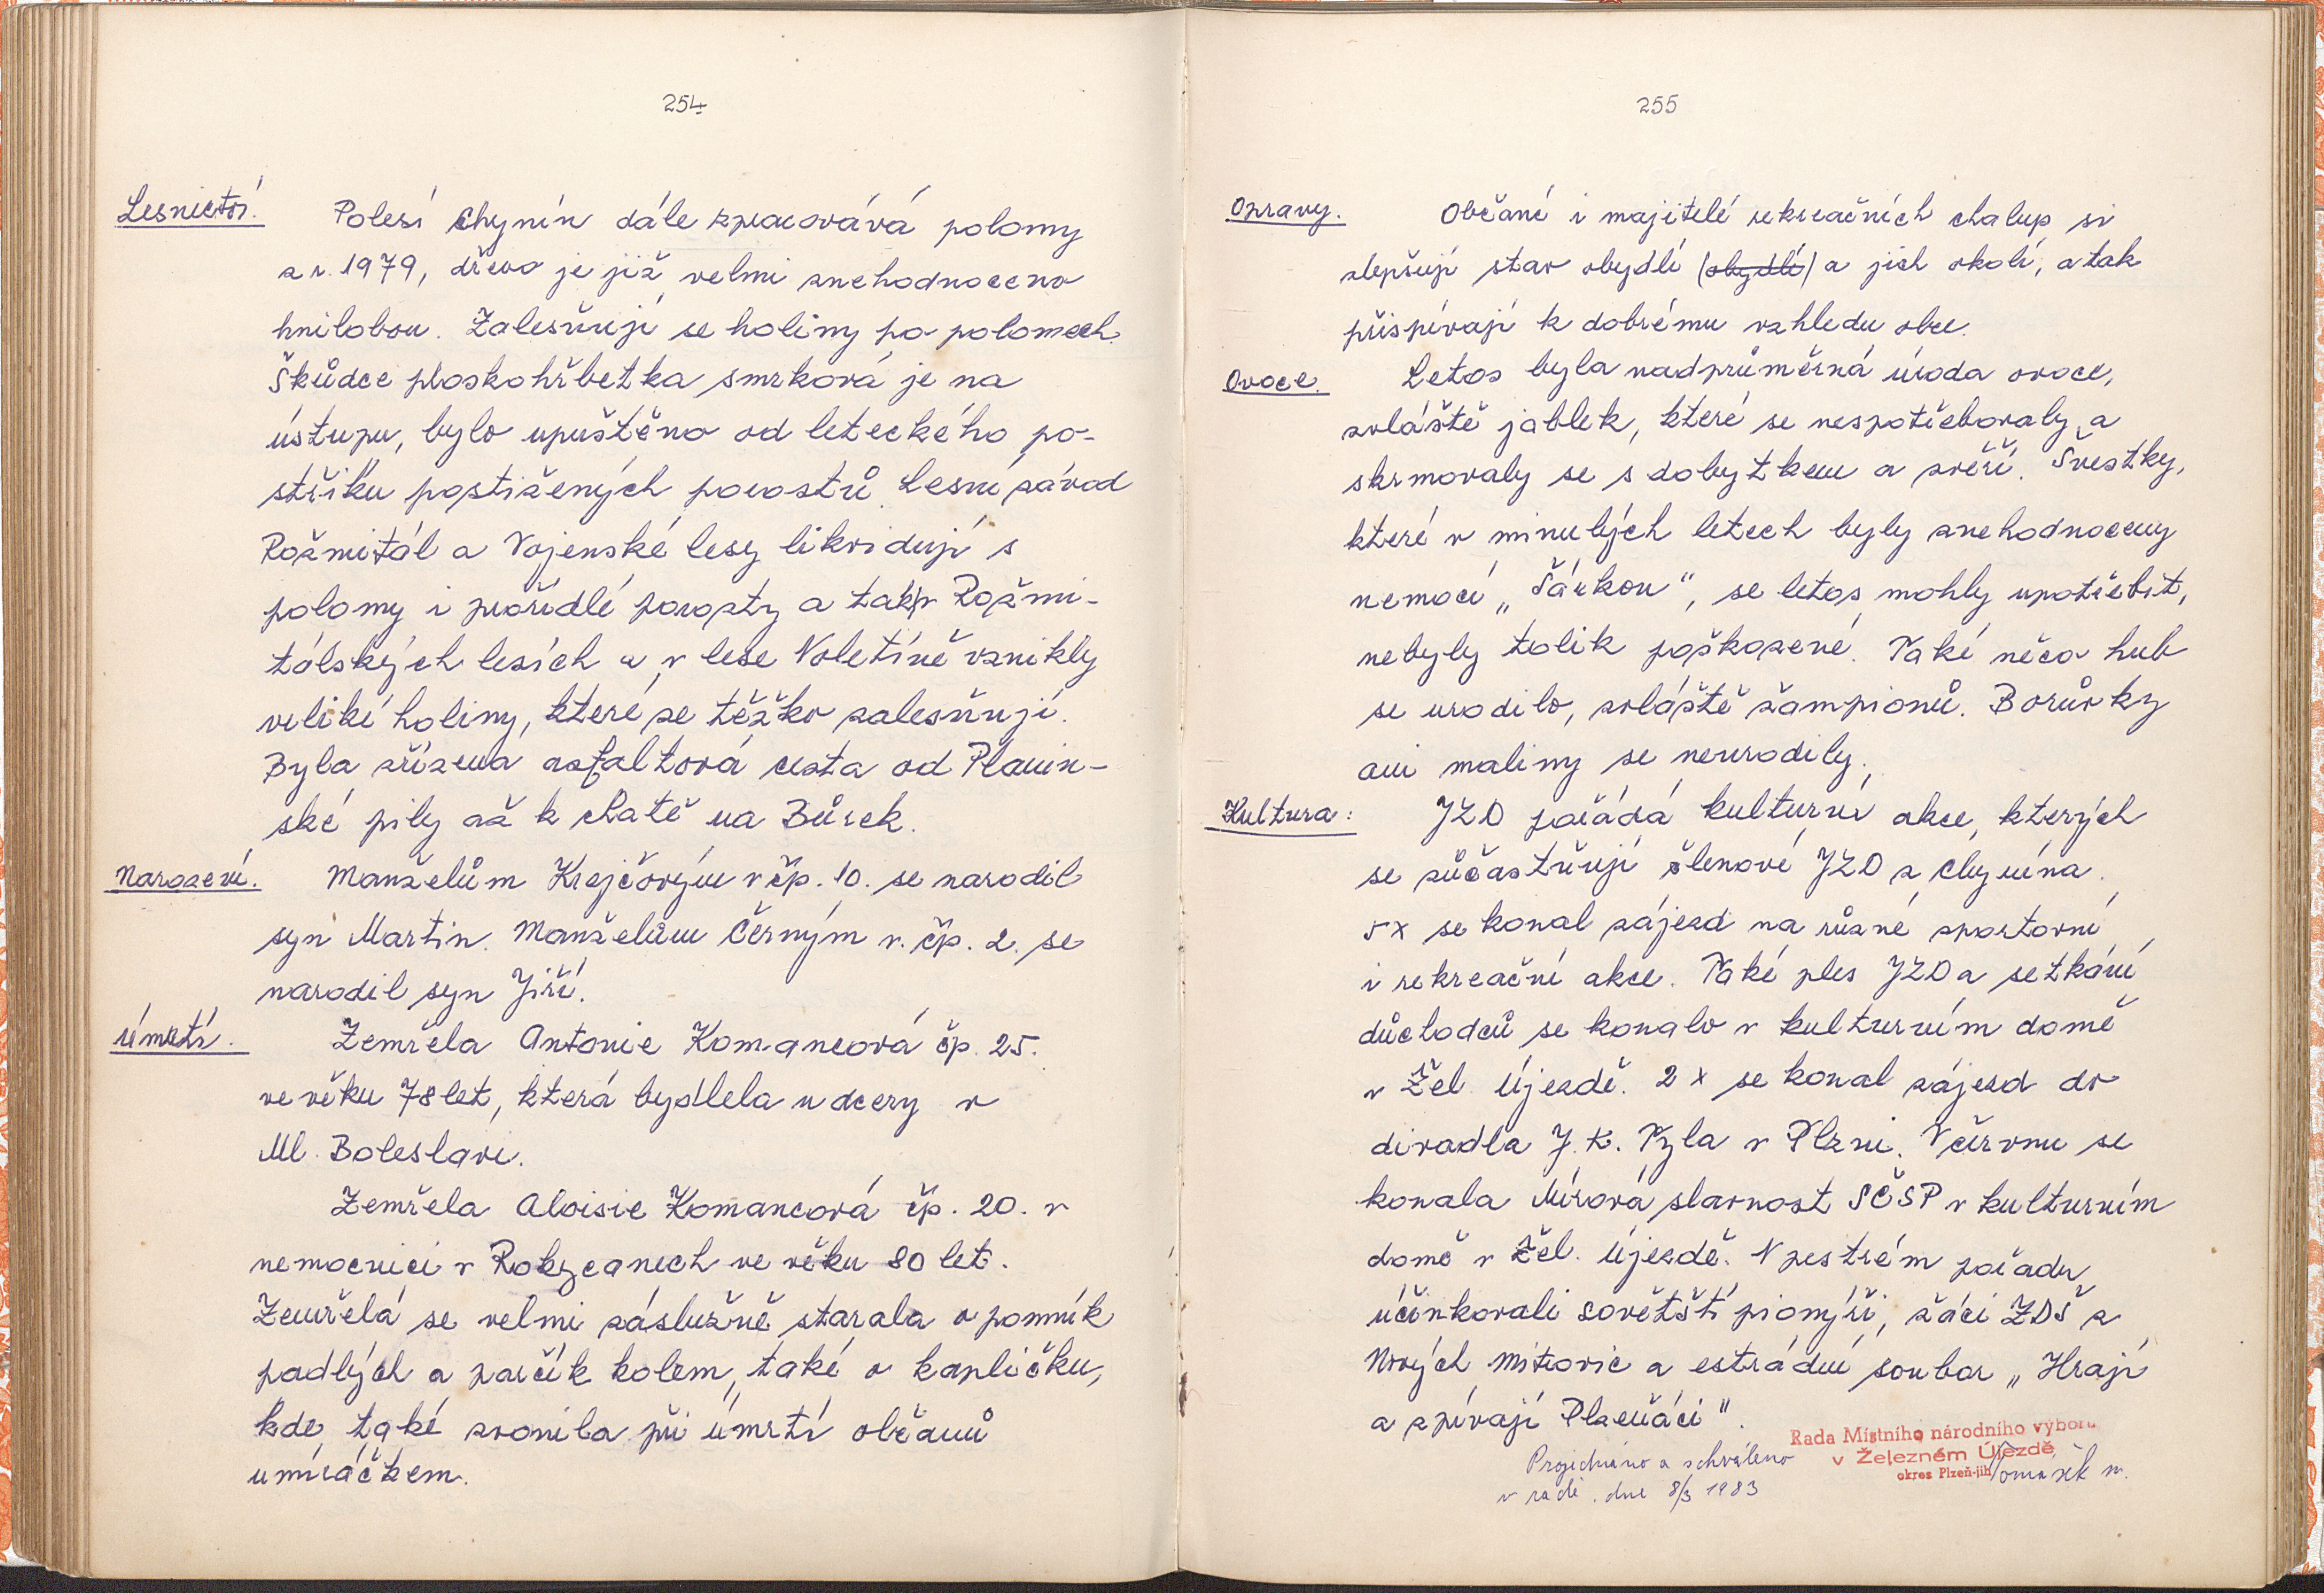 254
Lesnictví. Polesí Chynín dále zpracovává polomy
z r. 1979, dřevo je již velmi znehodnoceno
hnilobou. Zalesňují se holiny po polomech.
Škůdce ploskohřbetka smrková je na
ústupu, bylo upuštěno od leteckého po-
střiku postižených porostů. Lesní závod
Rožmitál a Vojenské lesy likvidují s
polomy i prořídlé porosty a tak v Rožmi-
tálských lesích a v lese Voletíně vznikly
veliké holiny, které se těžko zalesňují.
Byla zřízena asfaltová cesta od Planin-
ské pily až k chatě na Bůrek.
Narození. Manželům Krejčovým v čp. 10. se narodil
syn Martin. Manželům Černým v. čp. 2. se
narodil syn Jiří.
Úmrtí. Zemřela Antonie Komancová čp. 25.
ve věku 78 let, která bydlela u dcery v
Ml. Boleslavi.
Zemřela Aloisie Komancová čp. 20. v
nemocnici v Rokycanech ve věku 80 let.
Zemřelá se velmi záslužně starala o pomník
padlých a parčík kolem, také o kapličku,
kde také zvonila při úmrtí občanů
umíráčkem.
255
Opravy. Občané i majitelé rekreačních chalup si
zlepšují stav obydlí (obydlí) a jich okolí, a tak
přispívají k dobrému vzhledu obce.
Ovoce. Letos byla nadprůměrná úroda ovoce,
zvláště jablek, které se nespotřebovaly a
skrmovaly se s dobytkem a zvěří. Švestky,
které v minulých letech byly znehodnoceny
nemocí „Šárkou", se letos mohly upotřebit,
nebyly tolik poškozené. Také něco hub
se urodilo, zvláště žampionů. Borůvky
ani maliny se neurodily.
Kultura: JZD pořádá kulturní akce, kterých
se zůčastňují členové JZD z Chynína.
5x se konal zájezd na různé sportovní
i rekreační akce. Také ples JZD a setkání
důchodců se konalo v kulturním domě
v Žel. Újezdě. 2x se konal zájezd do
divadla J. K. Tyla v Plzni. V červnu se
konala Mírová slavnost SČSP v kulturním
domě v Žel. Újezdě. V pestrém pořadu
účinkovali sovětští pionýři, žáci ZDŠ z
Nových Mitrovic a estrádní soubor „Hrají
a zpívají Plzeňáci".
Rada Místního národního výboru
v Železném Újezdě,
okres Plzeň-jih
Projednáno a schváleno
v radě. dne 8/3 1983